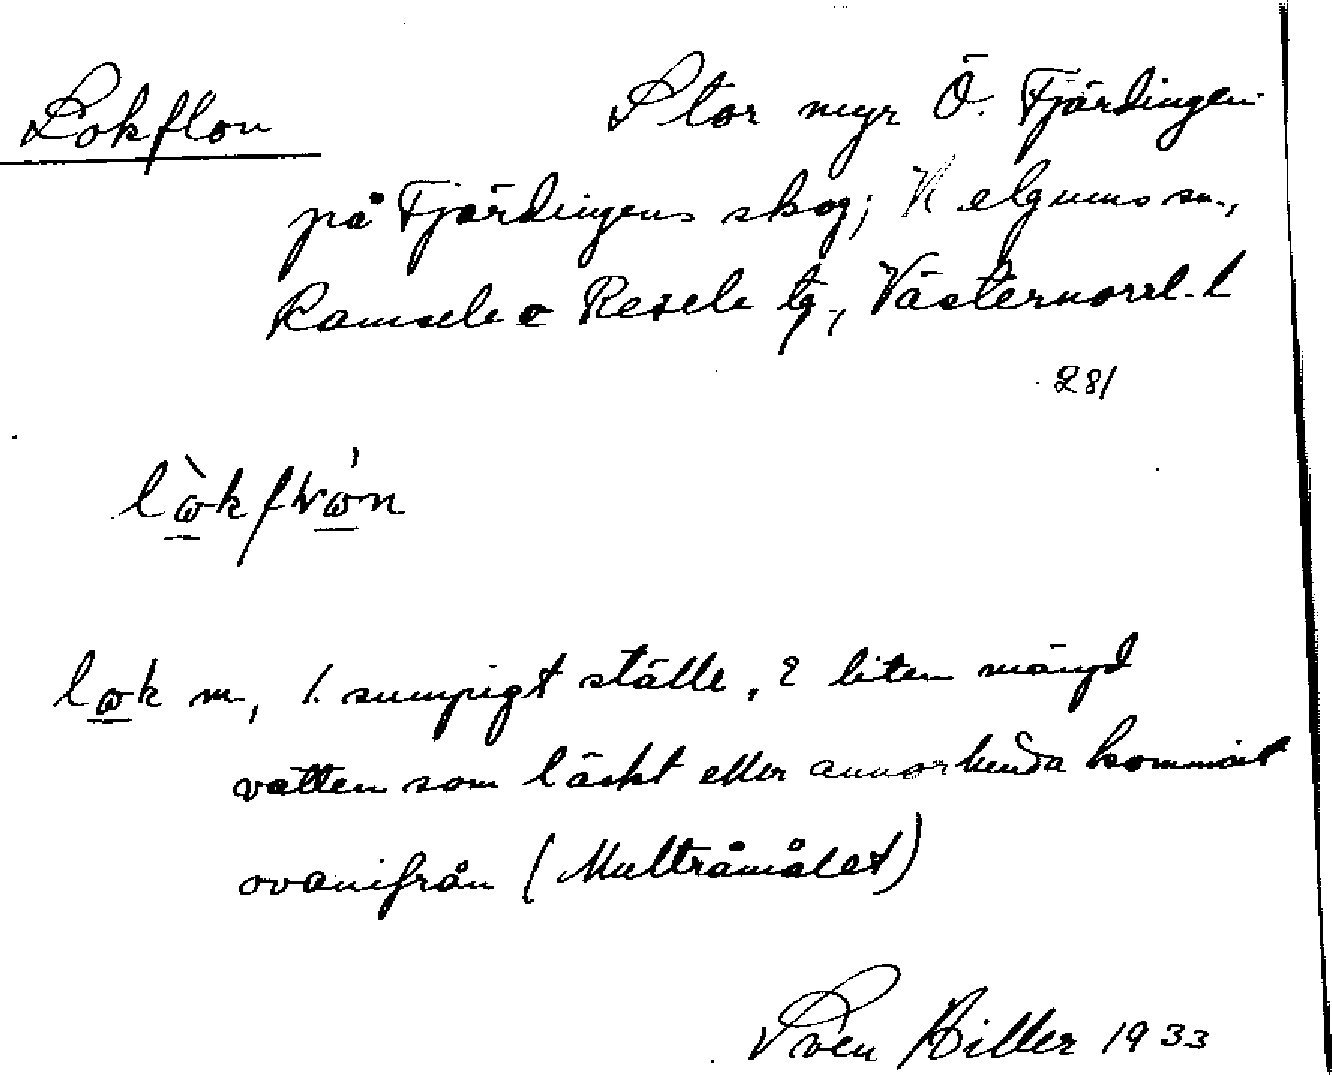 Lokflon Stor myr Ö. Fjärdingen
på Fjärdingens skog; Helgums sn.,
Ramsele o Resele tg, Västernorrl. l
281
lo̱kfl
lo̱k m, 1. sumpigt ställe, 2 liten mängd
vatten som läckt eller annorlunda kommit
ovanifrån (Multråmålet)
Sven Hiller 1933